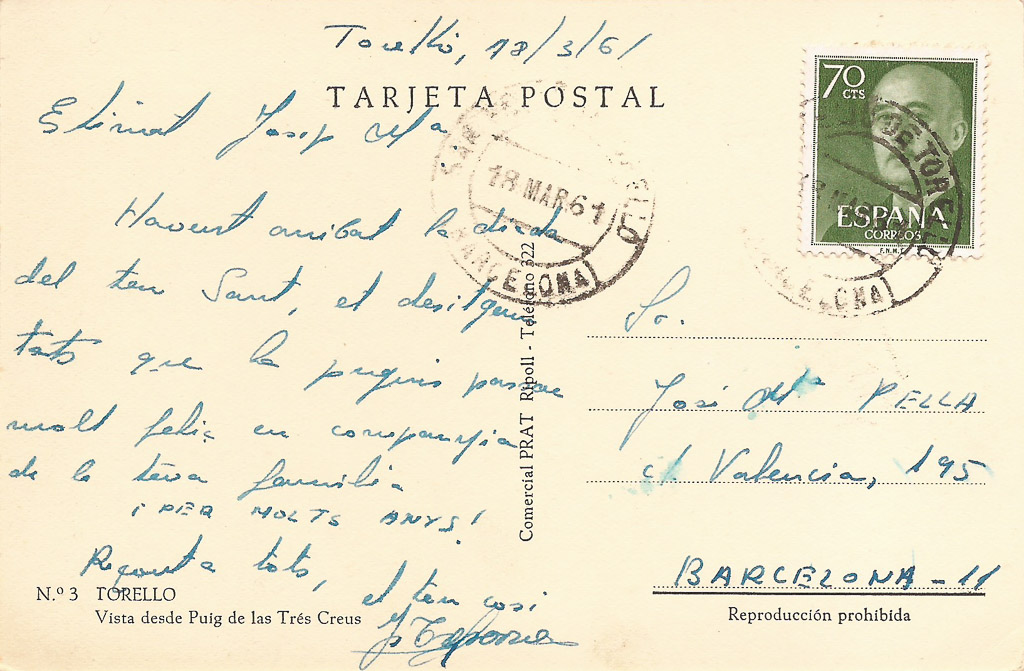 Torelló, 18/3/61
TARJETA POSTAL
Estimat Josep Mª
Havent arribat la diada
del teu Sant, et desitgem
tots que la puguis passar
molt feliç en companyia
de la teva familia
¡PER MOLTS ANYS!
Records a tots,
el teu cosí
Nº 3 TORELLO
Vista desde Puig de las Trés Creus
Comercial PRAT Ripoll - Teléfono 322
18 MAR 61
BARCELONA
70
CTS
ESPAÑA
CORREOS
F.N.M.T.
DE TORELLO
BARCELONA
Sr.
José Mª PELLA
c/ Valencia, 195
BARCELONA-11
Reproducción prohibida